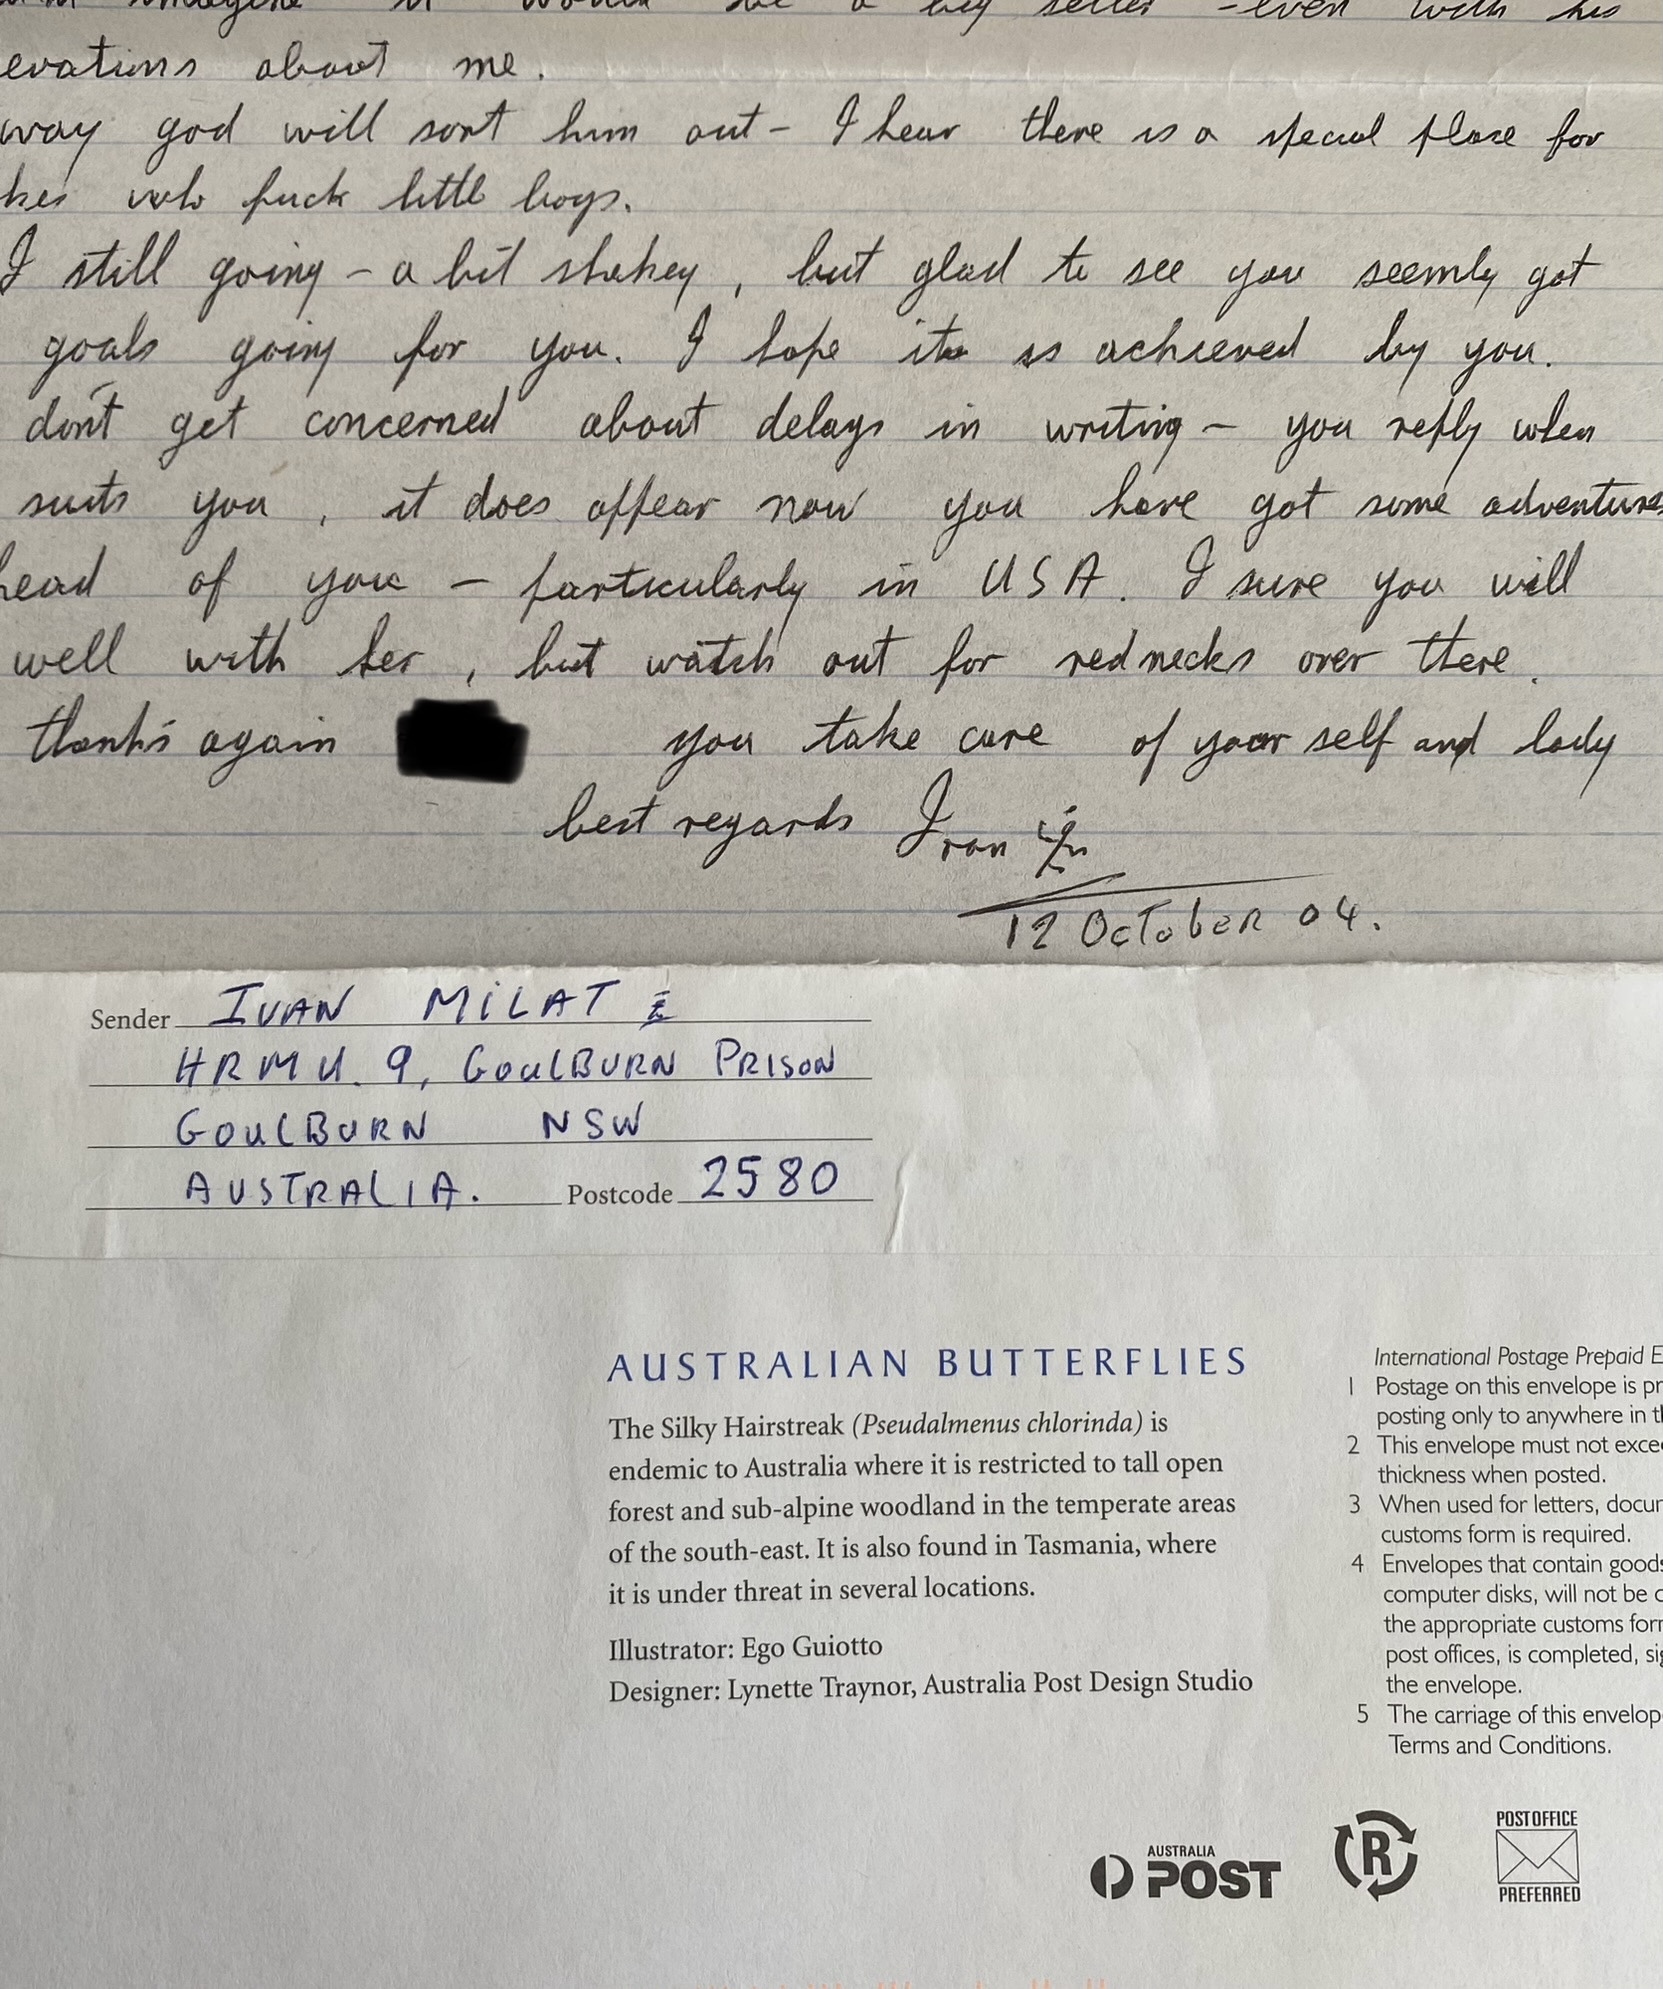 imagine it would be a big seller - even with his
evations about me.
way god will sort him out - I hear there is a special place for
kes who fuck little boys.
I still going - a bit shakey, but glad to see you seemly got
goals going for you. I hope it is achieved by you.
don't get concerned about delays in writing - you reply when
suits you, it does appear now you have got some adventures
head of you - particularly in USA. I sure you will
well with her, but watch out for rednecks over there.
thank's again you take care of your self and lady
best regards Ivan
12 OCTOBER 04.
Sender IVAN MILAT
HRMU. 9, GOULBURN PRISON
GOULBURN NSW
AUSTRALIA. Postcode 2580
AUSTRALIAN BUTTERFLIES
The Silky Hairstreak (Pseudalmenus chlorinda) is
endemic to Australia where it is restricted to tall open
forest and sub-alpine woodland in the temperate areas
of the south-east. It is also found in Tasmania, where
it is under threat in several locations.
Illustrator: Ego Guiotto
Designer: Lynette Traynor, Australia Post Design Studio
International Postage Prepaid E
1 Postage on this envelope is pr
posting only to anywhere in th
2 This envelope must not excee
thickness when posted.
3 When used for letters, docum
customs form is required.
4 Envelopes that contain goods
computer disks, will not be c
the appropriate customs form
post offices, is completed, sig
the envelope.
5 The carriage of this envelop
Terms and Conditions.
AUSTRALIA
POST
R
POST OFFICE
PREFERRED